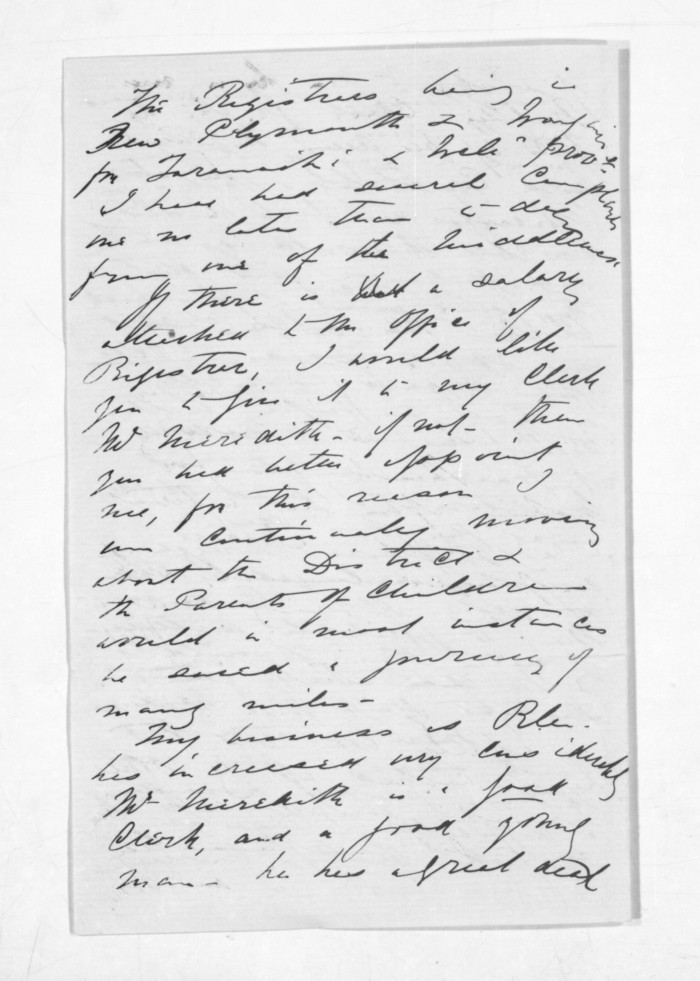 The Registrers being in
New Plymouth & Wanganui
for Taranaki & Well" prov
I have had several Complaints
one no later than to-day
from one of the
If there is a salary
attached to the office of
Registrer, I would like
you to give it to my Clerk
Mr Meredith - if not - then
you had better appoint
me, for this reason I
am continually moving
about the District &
the Parents of children
would in most instances
be saved a journey of
many miles -
My business as R.
has increased very considerably
Mr Meredith is a good
Clerk, and a good young
man - he has a great deal